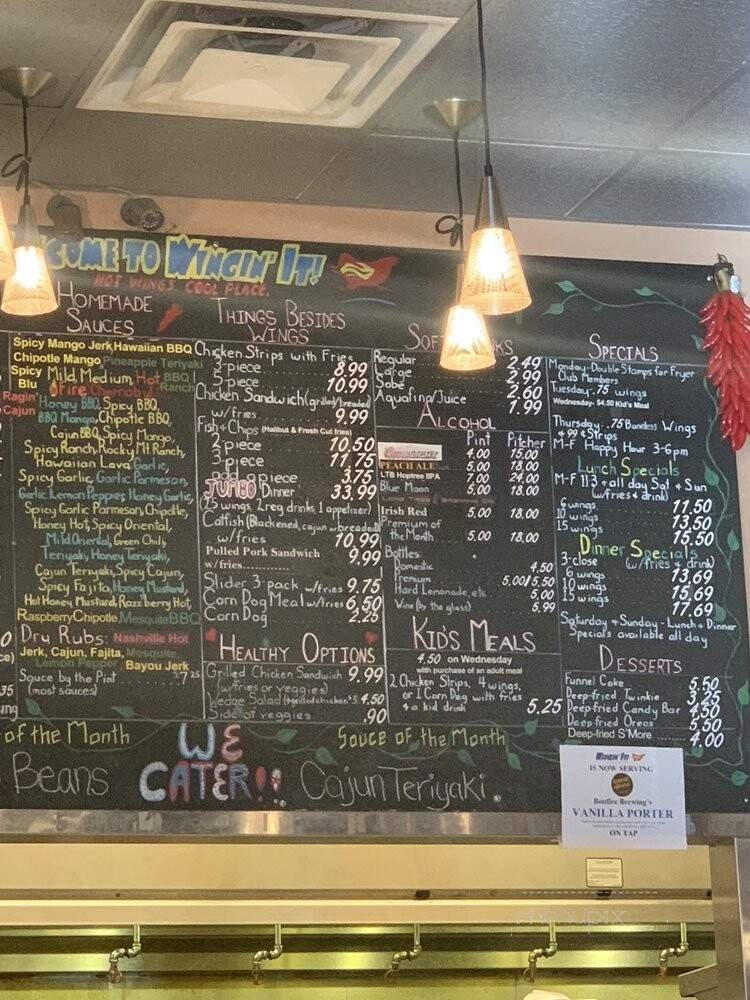 COME TO WINGIN' IT!
HOT WINGS COOL PLACE.
HOMEMADE
SAUCES
Spicy Mango Jerk, Hawaiian BBQ
Chipotle Mango, Pineapple Teriyaki
Spicy Mild Medium Hot BBQ
Blu Fire Ranch
Ragin' Honey BBQ, Spicy BBQ,
Cajun BBQ Mango, Chipotle BBQ,
Cajun BBQ, Spicy Mango,
Spicy Ranch, Rocky Mt. Ranch,
Hawaiian Lava, Garlic,
Spicy Garlic, Garlic Parmesan,
Garlic Lemon Pepper, Honey Garlic,
Spicy Garlic Parmesan, Chipotle,
Honey Hot, Spicy Oriental,
Mild Oriental, Green Chili,
Teriyaki, Honey Teriyaki,
Cajun Teriyaki, Spicy Cajun,
Spicy Fajita, Honey Mustard,
Hot Honey Mustard, Razzberry Hot,
Raspberry Chipotle, Mesquite BBQ
Dry Rubs: Nashville Hot
Jerk, Cajun, Fajita, Mesquite,
Lemon Pepper, Bayou Jerk
Sauce by the Pint
(most sauces)
THINGS BESIDES
WINGS
Chicken Strips with Fries
3-piece 8.99
5-piece 10.99
Chicken Sandwich (grilled/breaded)
w/fries 9.99
Fish & Chips (Halibut & Fresh Cut fries)
2-piece 10.50
3-piece 11.75
add a piece 3.75
JUMBO Dinner 33.99
(25 wings, 2 reg drinks, 1 appetizer)
Catfish (Blackened, cajun or breaded)
w/fries 10.99
Pulled Pork Sandwich
w/fries 9.99
Slider 3-pack w/fries 9.75
Corn Dog Meal w/fries 6.50
Corn Dog 2.25
HEALTHY OPTIONS
Grilled Chicken Sandwich 9.99
(w/fries or veggies)
Wedge Salad 4.50
Side of veggies .90
Regular 2.49
Large 2.99
Sobe 2.60
Aquafina/Juice 1.99
ALCOHOL
Pint Pitcher
4.00 15.00
PEACH ALE 5.00 18.00
LTB Hoptree IIPA 7.00 24.00
Blue Moon 5.00 18.00
Irish Red 5.00 18.00
Premium of
the Month 5.00 18.00
Bottles:
Domestic 4.50
Premium 5.00/5.50
Hard Lemonade, etc. 5.00
Wine (by the glass) 5.99
KID'S MEALS
4.50 on Wednesday
with purchase of an adult meal
2 Chicken Strips, 4 wings,
or 1 Corn Dog with fries
& a kid drink 5.25
SPECIALS
Monday-Double Stamps for Fryer
Club Members
Tuesday-.75 wings
Wednesday- $4.50 Kid's Meal
Thursday-.75 Boneless Wings
& .99 Strips
M-F Happy Hour 3-6pm
Lunch Specials
M-F 11-3 & all day Sat & Sun
(w/fries & drink)
6 wings 11.50
10 wings 13.50
15 wings 15.50
Dinner Specials
3-close (w/fries & drink)
6 wings 13.69
10 wings 15.69
15 wings 17.69
Saturday & Sunday - Lunch & Dinner
Specials available all day
DESSERTS
Funnel Cake 5.50
Deep-fried Twinkie 3.25
Deep-fried Candy Bar 4.50
Deep-fried Oreos 5.50
Deep-fried S'More 4.00
of the Month
Beans
WE
CATER!!
Sauce of the Month
Cajun Teriyaki.
WINGIN' IT!
IS NOW SERVING
Bonfire Brewing's
VANILLA PORTER
ON TAP